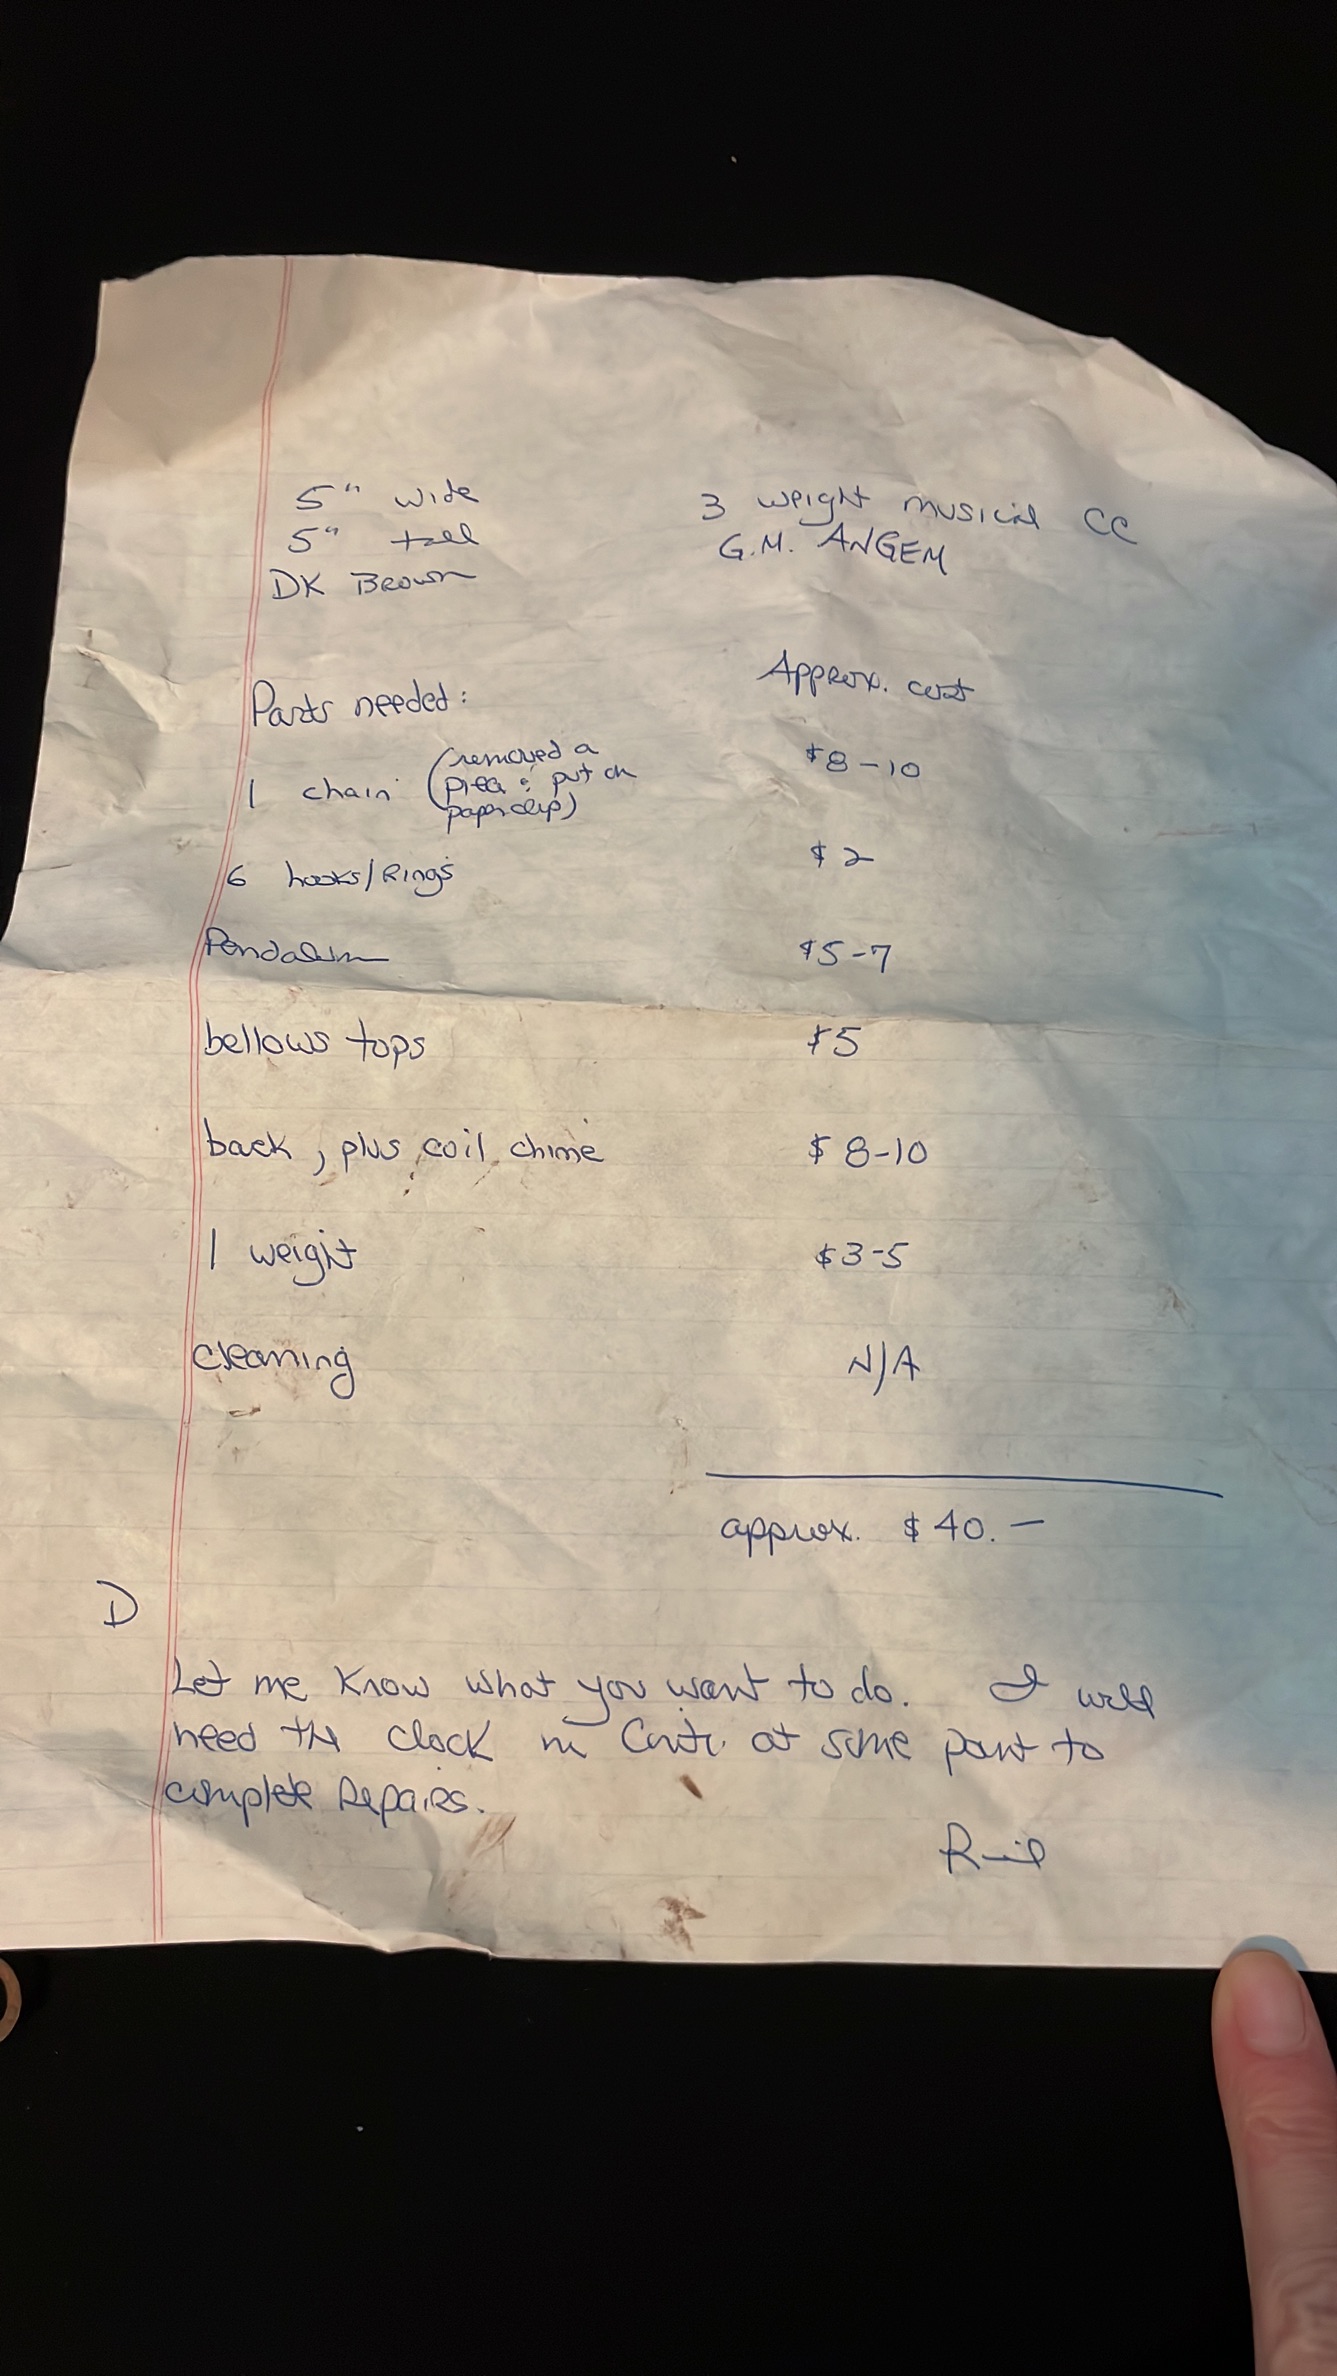 5" wide
5" tall
DK Brown
3 weight musical CC
G.M. ANGEM
Parts needed:
Approx. cost
1 chain (removed a
piece & put on
paperclip)
$8-10
6 hooks/Rings
$2
Pendalum
$5-7
bellows tops
$5
back, plus coil chime
$8-10
1 weight
$3-5
cleaning
N/A
approx. $40.—
D
Let me know what you want to do. I will
need the clock in at some point to
complete Repairs.